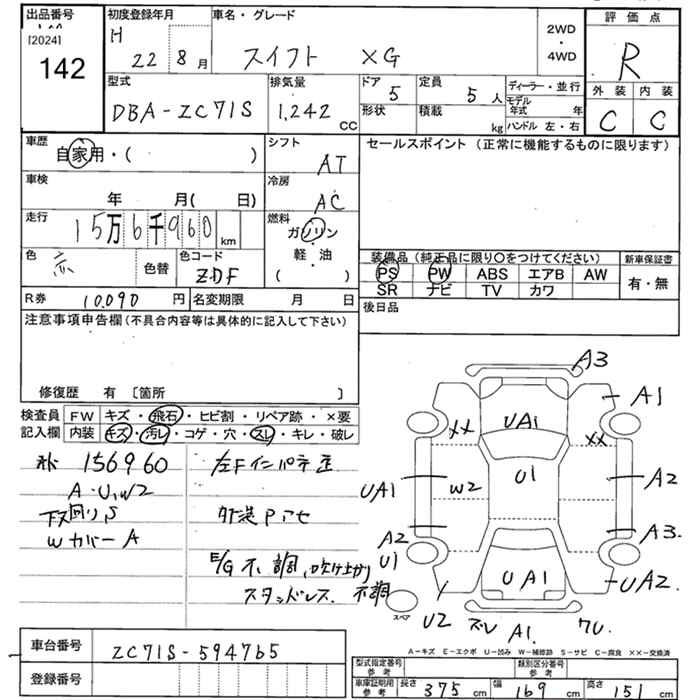 出品番号
[2024]
142
初度登録年月
H 22 8月
車名・グレード
スイフト XG
2WD
・
4WD
評価点
R
外装 内装
C C
型式
DBA-ZC71S
排気量
1,242 CC
ドア 5
形状
定員 5人
積載 kg
ディーラー・並行
モデル年式 年
ハンドル 左・右
車歴
自家用・( )
シフト AT
セールスポイント (正常に機能するものに限ります)
車検
年 月( 日)
冷房 AC
走行
15万6千960 km
燃料
ガソリン
・
軽・油
( )
色 赤 色替
色コード ZDF
装備品 (純正品に限り○をつけてください) 新車保証書
PS PW ABS エアB AW 有・無
SR ナビ TV カワ
R券 10,090円 名変期限 月 日
後日品
注意事項申告欄 (不具合内容等は具体的に記入して下さい)
修復歴 有 〔箇所 〕
検査員 FW キズ・飛石・ヒビ割・リペア跡・×要
記入欄 内装 キズ・汚レ・コゲ・穴・スレ・キレ・破レ
156960
A・U,W2
下回りS
WカバーA
左Fインパネ歪
外装Pアセ
E/G不調,吹け上がり
スタッドレス. 不調
A3
A1
UA1
XX XX
U1
UA1 W2 A2
A2 A3
U1
UA1 UA2
スペア
U2 ズレ A1 7U
A-キズ E-エクボ U-凹み W-補修跡 S-サビ C-腐食 ××-交換済
車台番号 ZC71S-594765
登録番号
型式指定番号 参考
類別区分番号 参考
車庫証明用 参考 長さ 375 cm 幅 169 cm 高さ 151 cm